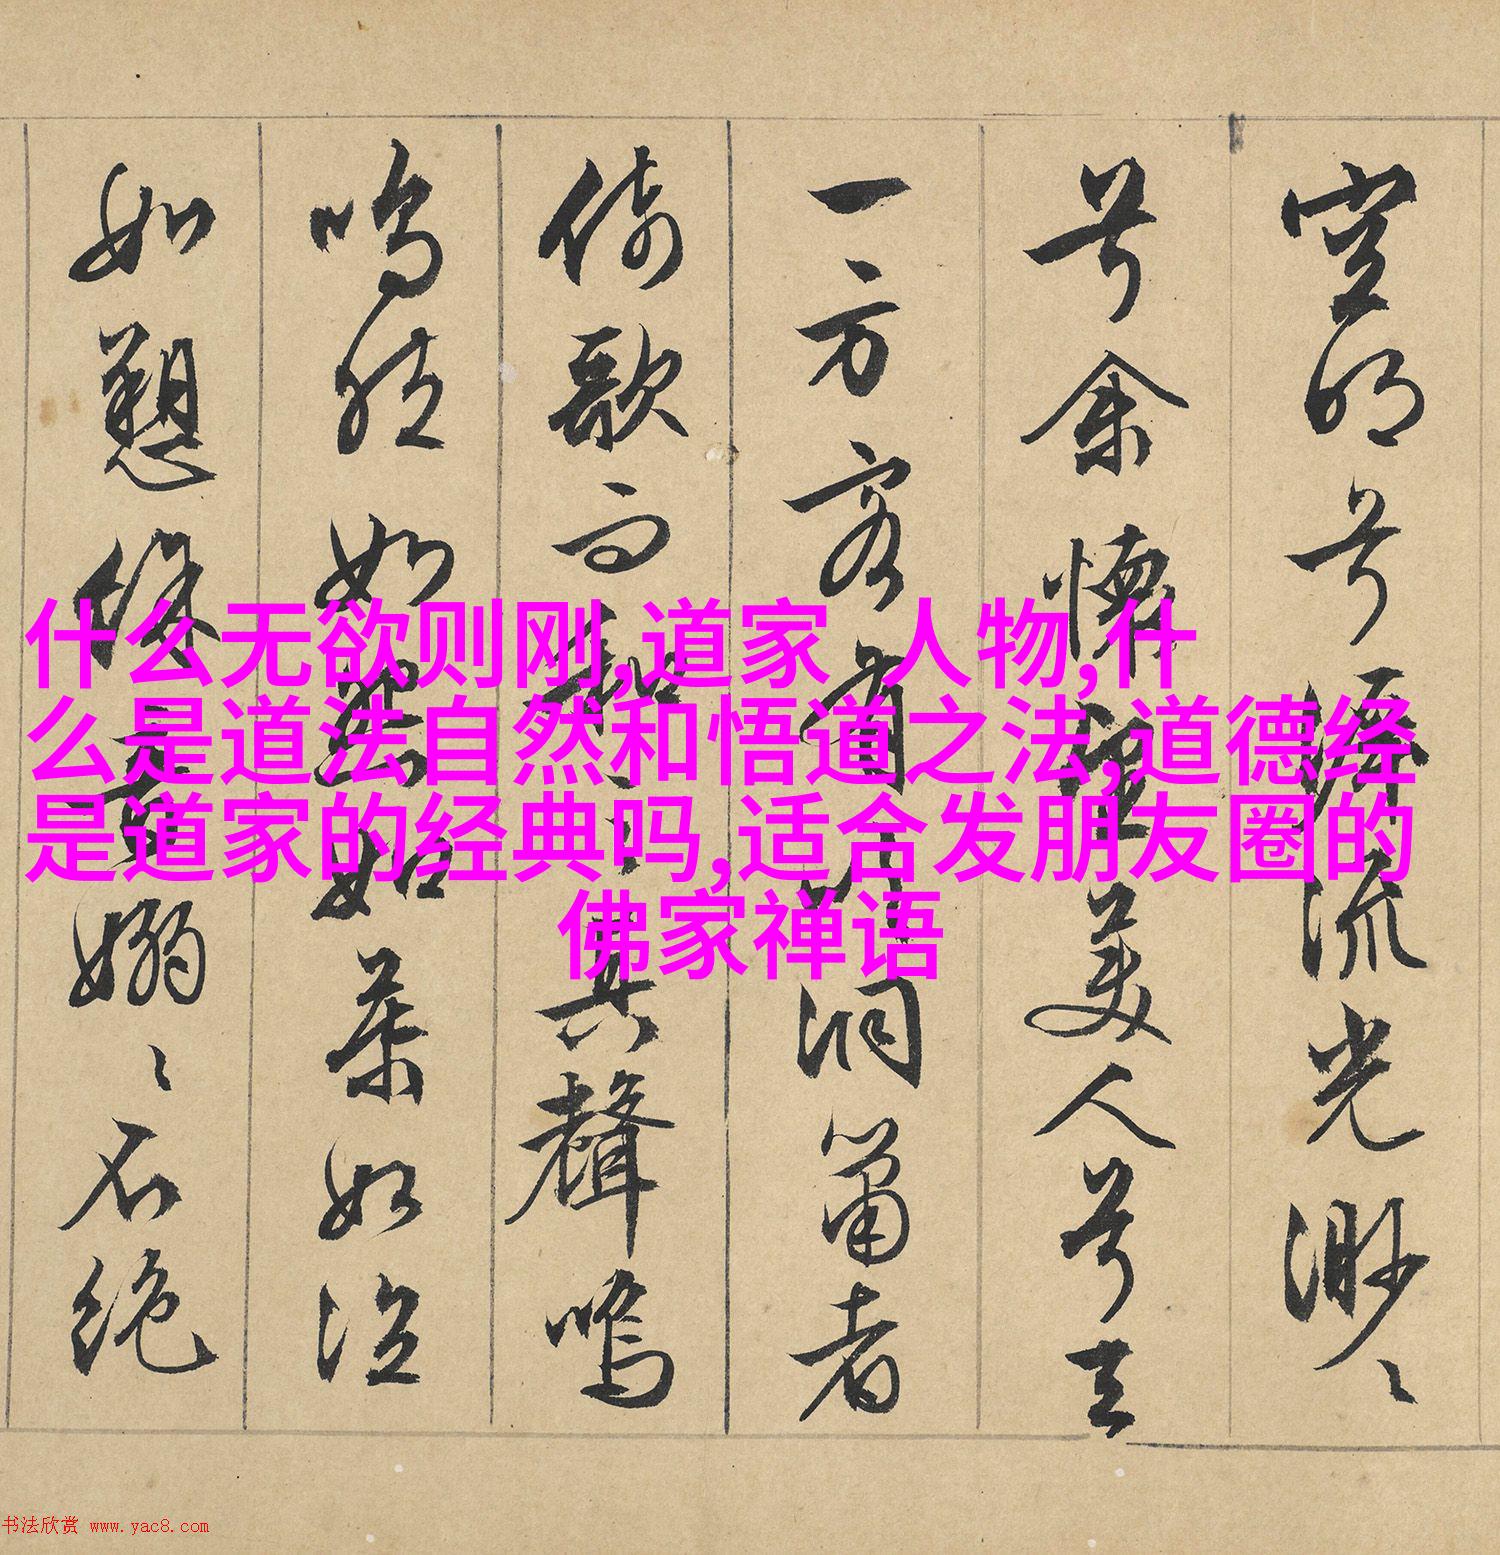 空明兮泝流光渺〻
兮余懷望美人兮天
一方客有吹洞簫者
倚歌而和之其聲嗚
嗚然如怨如慕如泣
如愬餘音嫋〻不絕
什么无欲则刚,道家 人物,什
么是道法自然和悟道之法,道德经
是道家的经典吗,适合发朋友圈的
佛家禅语
书法欣赏 www.yac8.com